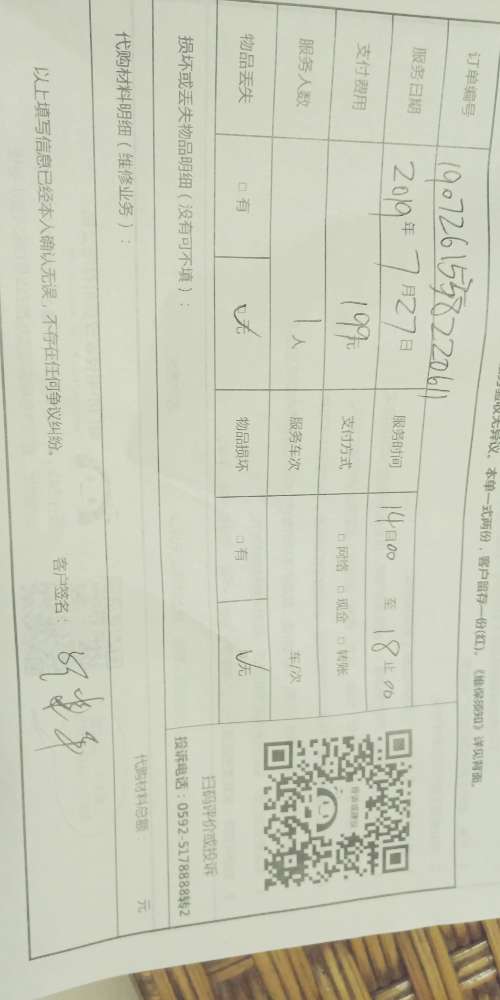 本单一式两份，客户留存一份(红)。《维保须知》详见背面。
订单编号
服务日期 2019年 7月27日 服务时间 14日00 至 18止00
支付费用 199元 支付方式 □网络 □现金 □转账
服务人数 1人 服务车次 车/次
物品丢失 □有 ☑无 物品损坏 □有 ☑无
扫码评价或投诉
投诉电话：0592-5178888转2
损坏或丢失物品明细（没有可不填）：
代购材料明细（维修业务）：
代购材料总额 元
以上填写信息已经本人确认无误，不存在任何争议纠纷。 客户签名：